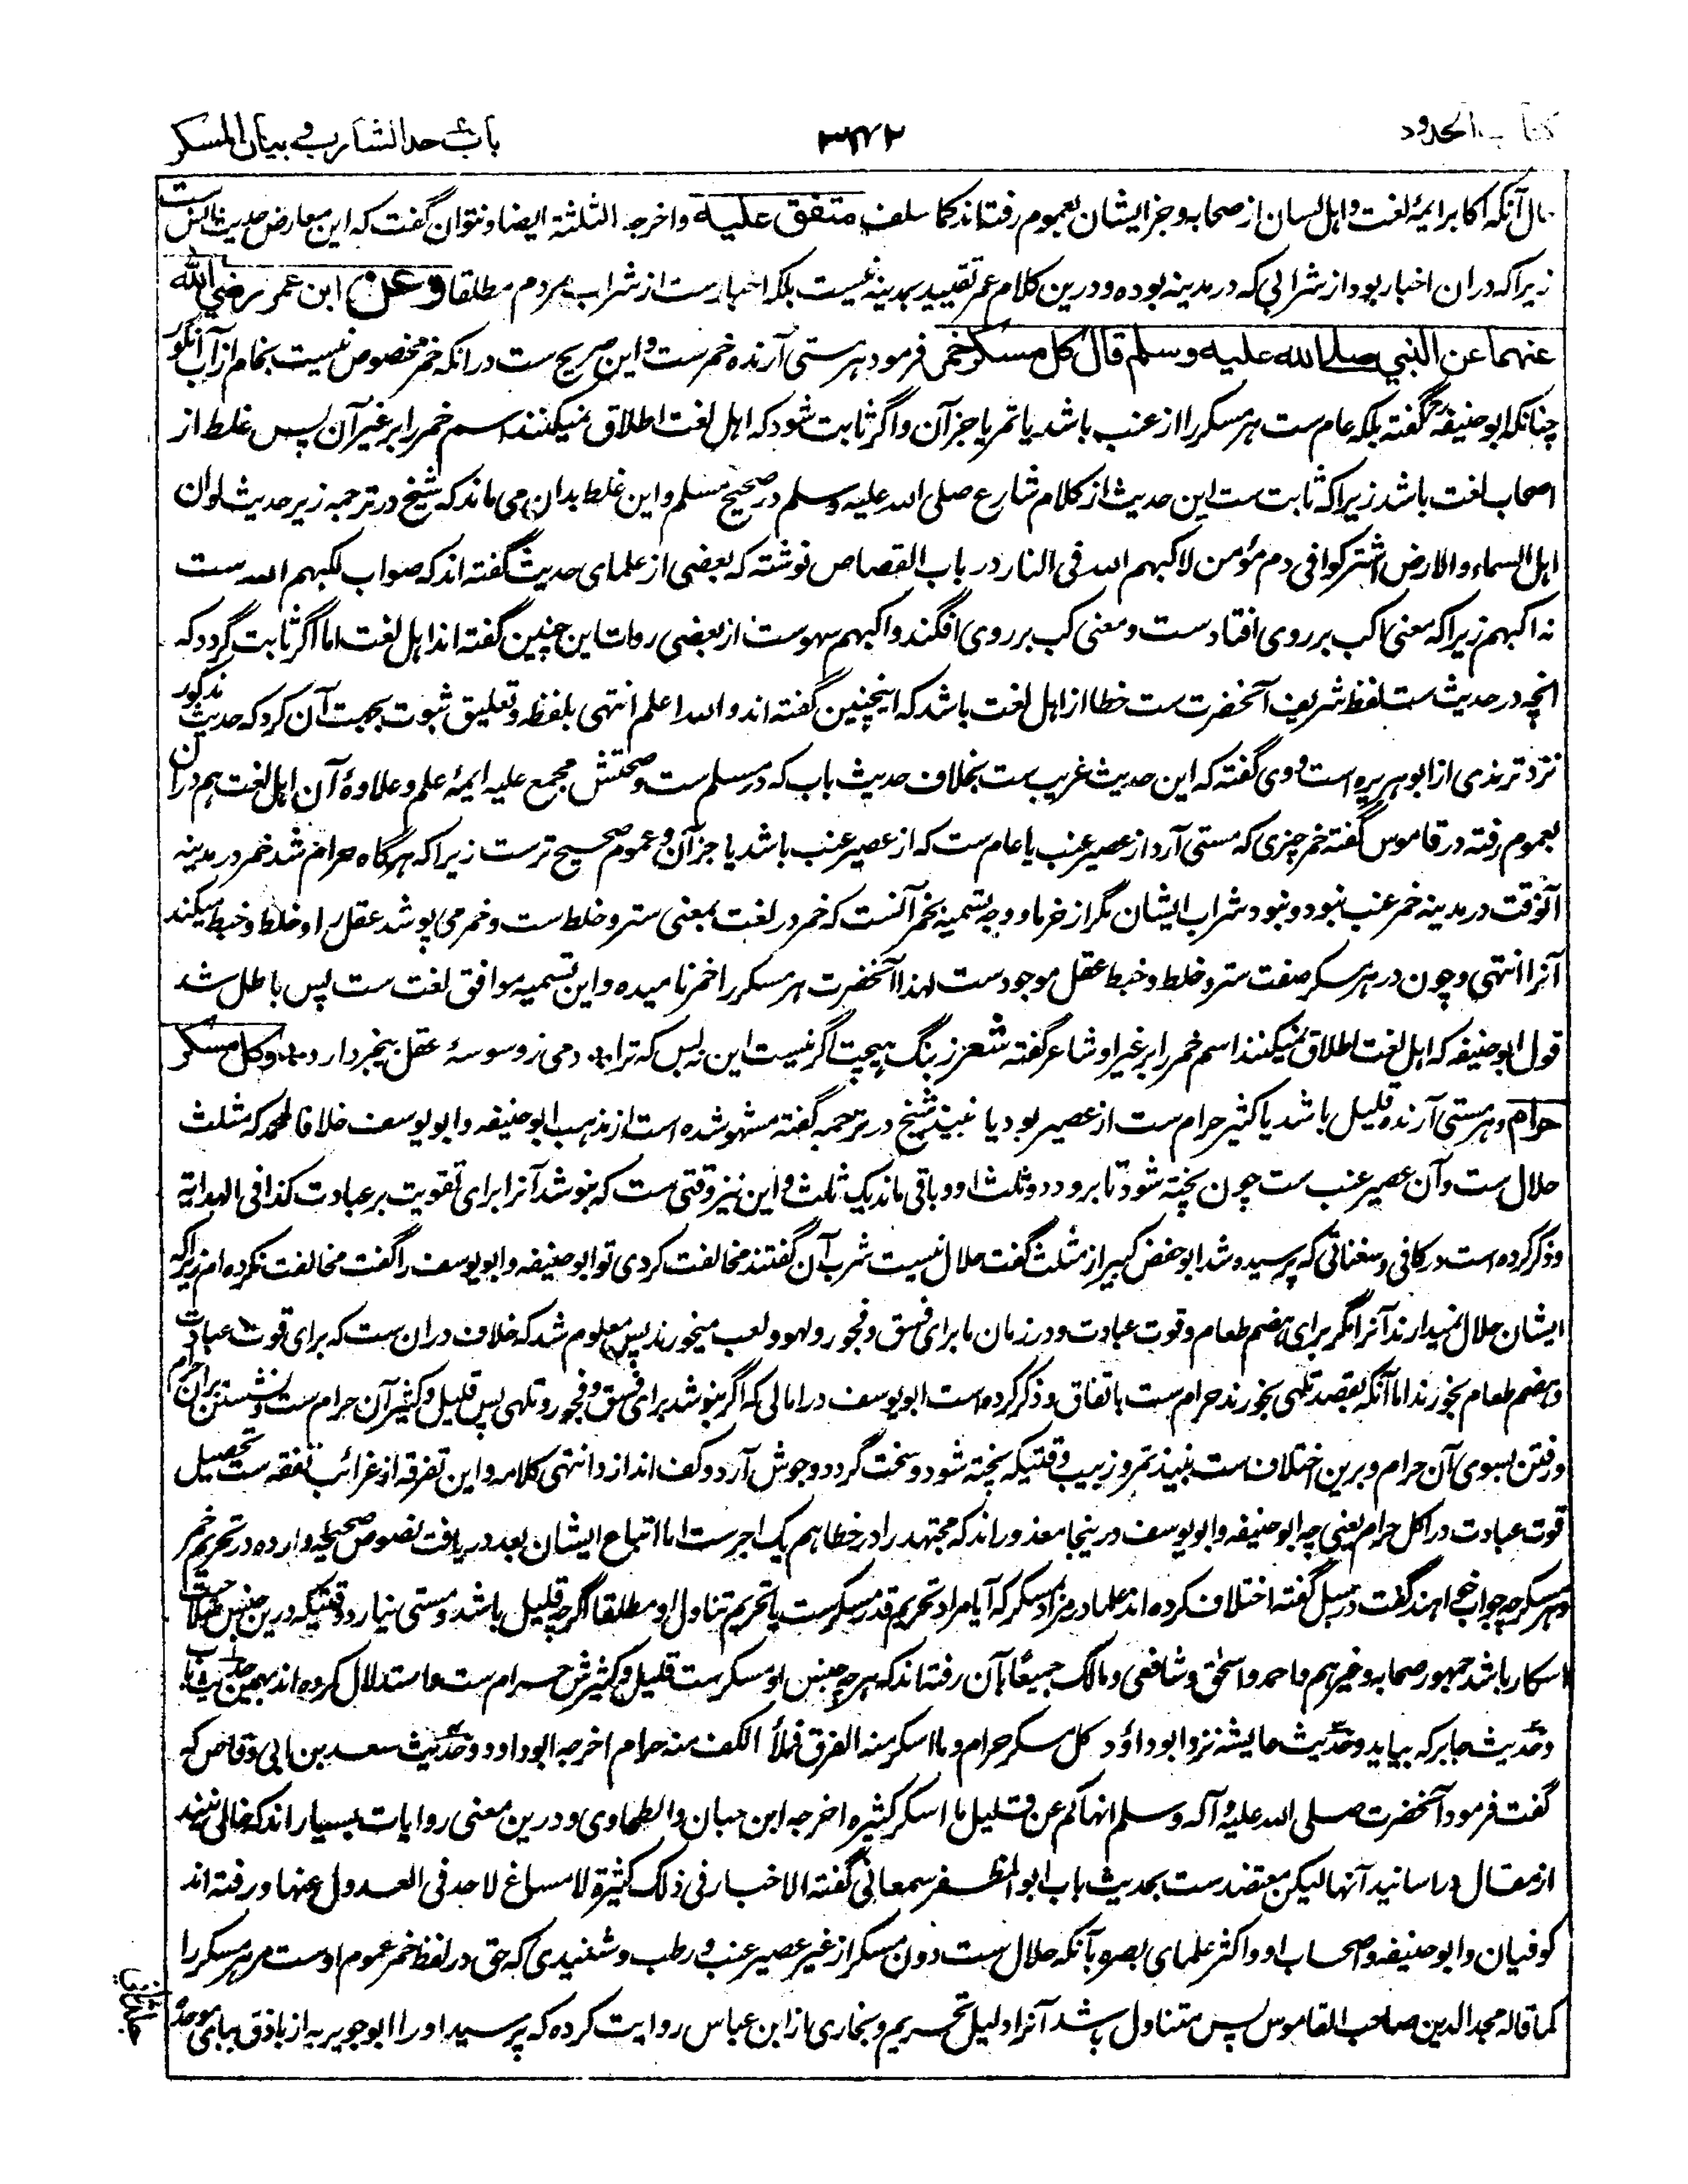 کتاب الحدود
۳۴۲
باب حد الشارب و بیان المسکر
حال آنکه اکابر ایمهٔ لغت و اہل لسان از صحابه و جز ایشان بعموم رفته‌اند کما سلف متفق علیه و اخرجه الثلثة ایضا و نتوان گفت که این معارض حدیث انس ست
زیرا که دران اخبار بود از شرابی که در مدینه بوده و درین کلام عمر تقیید بمدینه نیست بلکه اخبارست از شراب مردم مطلقا وعن ابن عمر رضی الله
عنهما عن النبي صلی الله علیه وسلم قال کل مسکر خمر فرمود هر مستی آرنده خمرست و این صریح ست در آنکه خمر مخصوص نیست بخام از آب انگور
چنانکه ابو حنیفه رح گفته بلکه عام ست هر مسکر را از عنب باشد یا تمر یا جز آن و اگر ثابت شود که اہل لغت اطلاق نمیکنند اسم خمر را بر غیر آن پس غلط از
اصحاب لغت باشد زیرا که ثابت ست این حدیث از کلام شارع صلی الله علیه وسلم در صحیح مسلم و این غلط بدان می ماند که شیخ در ترجمه زیر حدیث لوان
اہل السماء والارض اشترکوا فی دم مؤمن لاکبهم الله فی النار در باب القصاص نوشته که بعضی از علمای حدیث گفته اند که صواب لکبهم الله ست
نه اکبهم زیرا که معنی اکب بر روی افتادست و معنی کب بر روی افگند و اکبهم سهوست از بعضی روات این چنین گفته اند اہل لغت اما اگر ثابت گردد که
انچه در حدیث ست لفظ شریف آنحضرت ست خطا از اہل لغت باشد که اینچنین گفته اند والله اعلم انتهی بلفظه و تعلیق ثبوت بجهت آن کرد که حدیث مذکور
نزد ترمذی از ابو هریره است و وی گفته که این حدیث غریب ست بخلاف حدیث باب که در مسلم ست و صحتش مجمع علیه ایمهٔ علم و علاوهٔ آن اہل لغت هم دران
بعموم رفته در قاموس گفته خمر چیزی که مستی آرد از عصیر عنب یا عام ست که از عصیر عنب باشد یا جز آن و عموم صحیح ترست زیرا که هرگاه حرام شد خمر در مدینه
آنوقت در مدینه خمر عنب نبود و نبود شراب ایشان مگر از خرما و وجه تسمیه بخمر آنست که خمر در لغت بمعنی ستر و خلط ست و خمر می پوشد عقل را و خلط و خبط میکند
آنرا انتهی و چون در هر مسکر صفت ستر و خلط و خبط عقل موجود ست لهذا آنحضرت هر مسکر را خمر نامیده و این تسمیه موافق لغت ست پس باطل شد
قول ابو حنیفه که اہل لغت اطلاق نمیکنند اسم خمر را بر غیر او شاعر گفته شعر ز بنگ هیچیت اگر نیست این نه بس که ترا ؞ دمی ز وسوسهٔ عقل بیخبر دارد ؞ وکل مسکر
حرام و هر مستی آرنده قلیل باشد یا کثیر حرام ست از عصیر بود یا نبیذ شیخ در ترجمه گفته مشهور شده است از مذهب ابو حنیفه و ابو یوسف خلافا لمحمد که مثلث
حلال ست و آن عصیر عنب ست چون پخته شود تا برود دو ثلث او و باقی ماند یک ثلث و این نیز وقتی ست که بنوشد آنرا برای تقویت بر عبادت کذا فی الهدایة
و ذکر کرده است در کافی و سغناقی که پرسیده شد ابو حفص کبیر از مثلث گفت حلال نیست شرب آن گفتند مخالفت کردی تو ابو حنیفه و ابو یوسف را گفت مخالفت نکرده ام زیرا که
ایشان حلال نمیدارند آنرا مگر برای هضم طعام و قوت عبادت و در زمان ما برای فسق و فجور و لهو و لعب میخورند پس معلوم شد که خلاف دران ست که برای قوت عبادت
و هضم طعام بخورند اما آنکه بقصد تلهی بخورند حرام ست باتفاق و ذکر کرده است ابو یوسف در امالی که اگر بنوشد برای فسق و فجور و تلهی پس قلیل و کثیر آن حرام ست و نشستن بران حرام
و رفتن بسوی آن حرام و برین اختلاف ست نبیذ تمر و زبیب وقتیکه پخته شود و سخت گردد و جوش آرد و کف اندازد انتهی کلامه و این تفرقه از غرائب تفقه ست تحصیل
قوت عبادت در اکل حرام یعنی چه ابو حنیفه و ابو یوسف درینجا معذور اند که مجتهد را در خطا هم یک اجرست اما اتباع ایشان بعد دریافت نصوص صحیحه وارده در تحریم خمر
و هر مسکر چه جواب خواهند گفت در سبل گفته اختلاف کرده اند علما در مراد مسکر که آیا مراد تحریم قدر مسکرست یا تحریم تناول او مطلقا اگرچه قلیل باشد و مستی نیارد وقتیکه درین جنس صلاحیت
اسکار باشد جمهور صحابه و غیرهم و احمد و اسحٰق و شافعی و مالک جمیعًا بآن رفته اند که هرچه جنس او مسکرست قلیل و کثیرش حرام ست و استدلال کرده اند بهمین حدیث باب
و حدیث جابر که بیاید و حدیث عایشه نزد ابو داؤد کل مسکر حرام و ما اسکر منه الفرق فملأ الکف منه حرام اخرجه ابو داود و حدیث سعد بن ابی وقاص که
گفت فرمود آنحضرت صلی الله علیه و آله وسلم انهاکم عن قلیل ما اسکر کثیره اخرجه ابن حبان والطحاوی و درین معنی روایات بسیار اند که خالی نیند
از مقال در اسانید آنها لیکن معتضدست بحدیث باب ابو المظفر سمعانی گفته الاخبار فی ذلک کثیرة لا مساغ لاحد فی العدول عنها و رفته اند
کوفیان و ابو حنیفه و اصحاب او و اکثر علمای بصره بآنکه حلال ست دون مسکر از غیر عصیر عنب و رطب و شنیدی که حق در لفظ خمر عموم اوست مر هر مسکر را
کما قاله مجد الدین صاحب القاموس پس متناول باشد آنرا دلیل تحریم و بخاری از ابن عباس روایت کرده که پرسید او را ابو جویریه از باذق ببای موحده
جلد ثانی